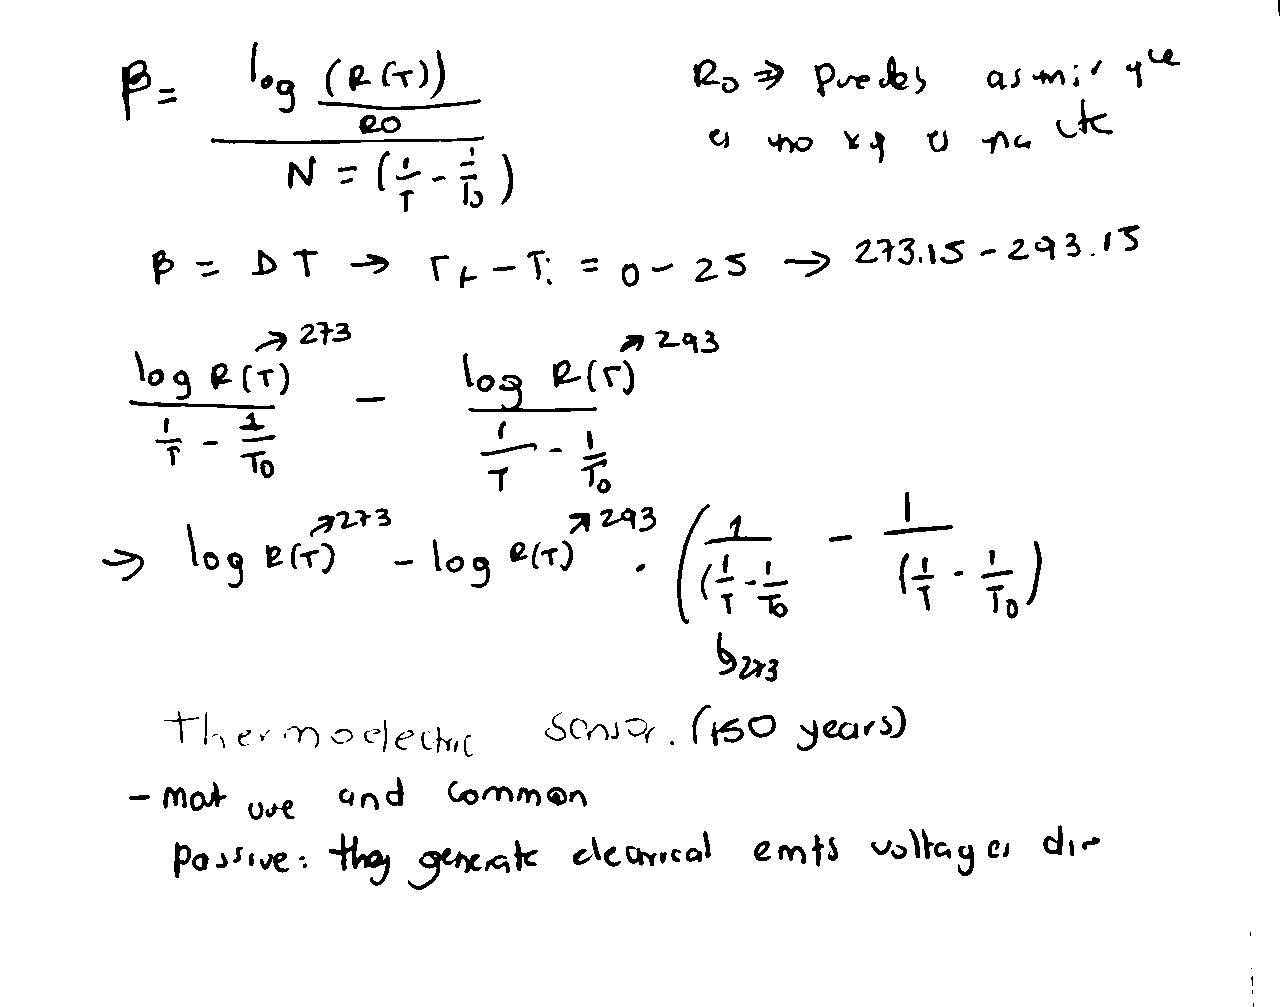 β = log (R(T)) / R0 / N = (1/T - 1/T0)
R0 => Puedes asmir que
es no xq es na cte
β = DT → Tf - Ti = 0 - 25 → 273.15 - 293.15
log R(T) →273 / 1/T - 1/T0 - log R(T) →293 / 1/T - 1/T0
→ log R(T) →273 - log R(T) →293 . (1/(1/T - 1/T0) - 1/(1/T - 1/T0)
↳ 273
Thermoelectric Sensor. (150 years)
- mature and common
passive: they generate electrical emfs voltages dir